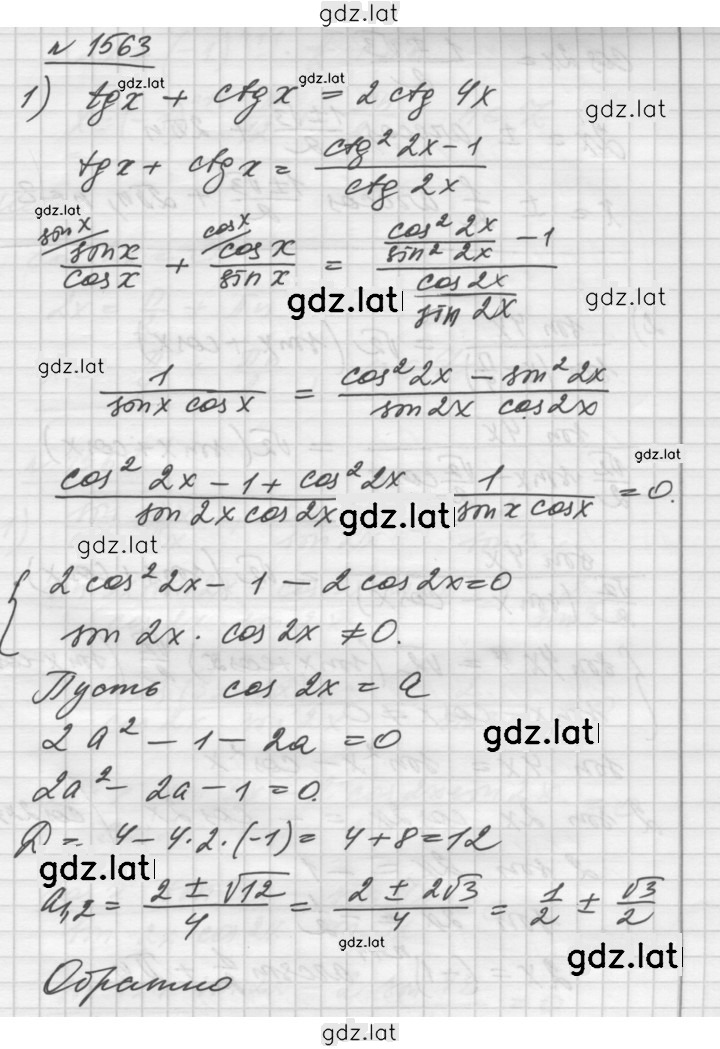 gdz.lat
№ 1563
gdz.lat gdz.lat
1) tgx + ctgx = 2 ctg 4x gdz.lat
tgx + ctgx = (ctg² 2x - 1)/(ctg 2x)
gdz.lat gdz.lat
sinx/ sinx/cosx + cosx/ cosx/sinx = (cos² 2x/sin² 2x - 1)/(cos 2x/sin 2x)
gdz.lat gdz.lat
gdz.lat
1/(sinx cosx) = (cos² 2x - sin² 2x)/(sin 2x cos 2x)
gdz.lat
(cos² 2x - 1 + cos² 2x)/(sin 2x cos 2x) 1/(sinx cosx) = 0.
gdz.lat
gdz.lat
{ 2 cos² 2x - 1 - 2 cos 2x = 0
sin 2x · cos 2x ≠ 0.
Пусть cos 2x = a
2a² - 1 - 2a = 0 gdz.lat
2a² - 2a - 1 = 0.
D = 4 - 4·2·(-1) = 4 + 8 = 12
gdz.lat
a1,2 = (2 ± √12)/4 = (2 ± 2√3)/4 = 1/2 ± √3/2
gdz.lat gdz.lat
Обратно
gdz.lat